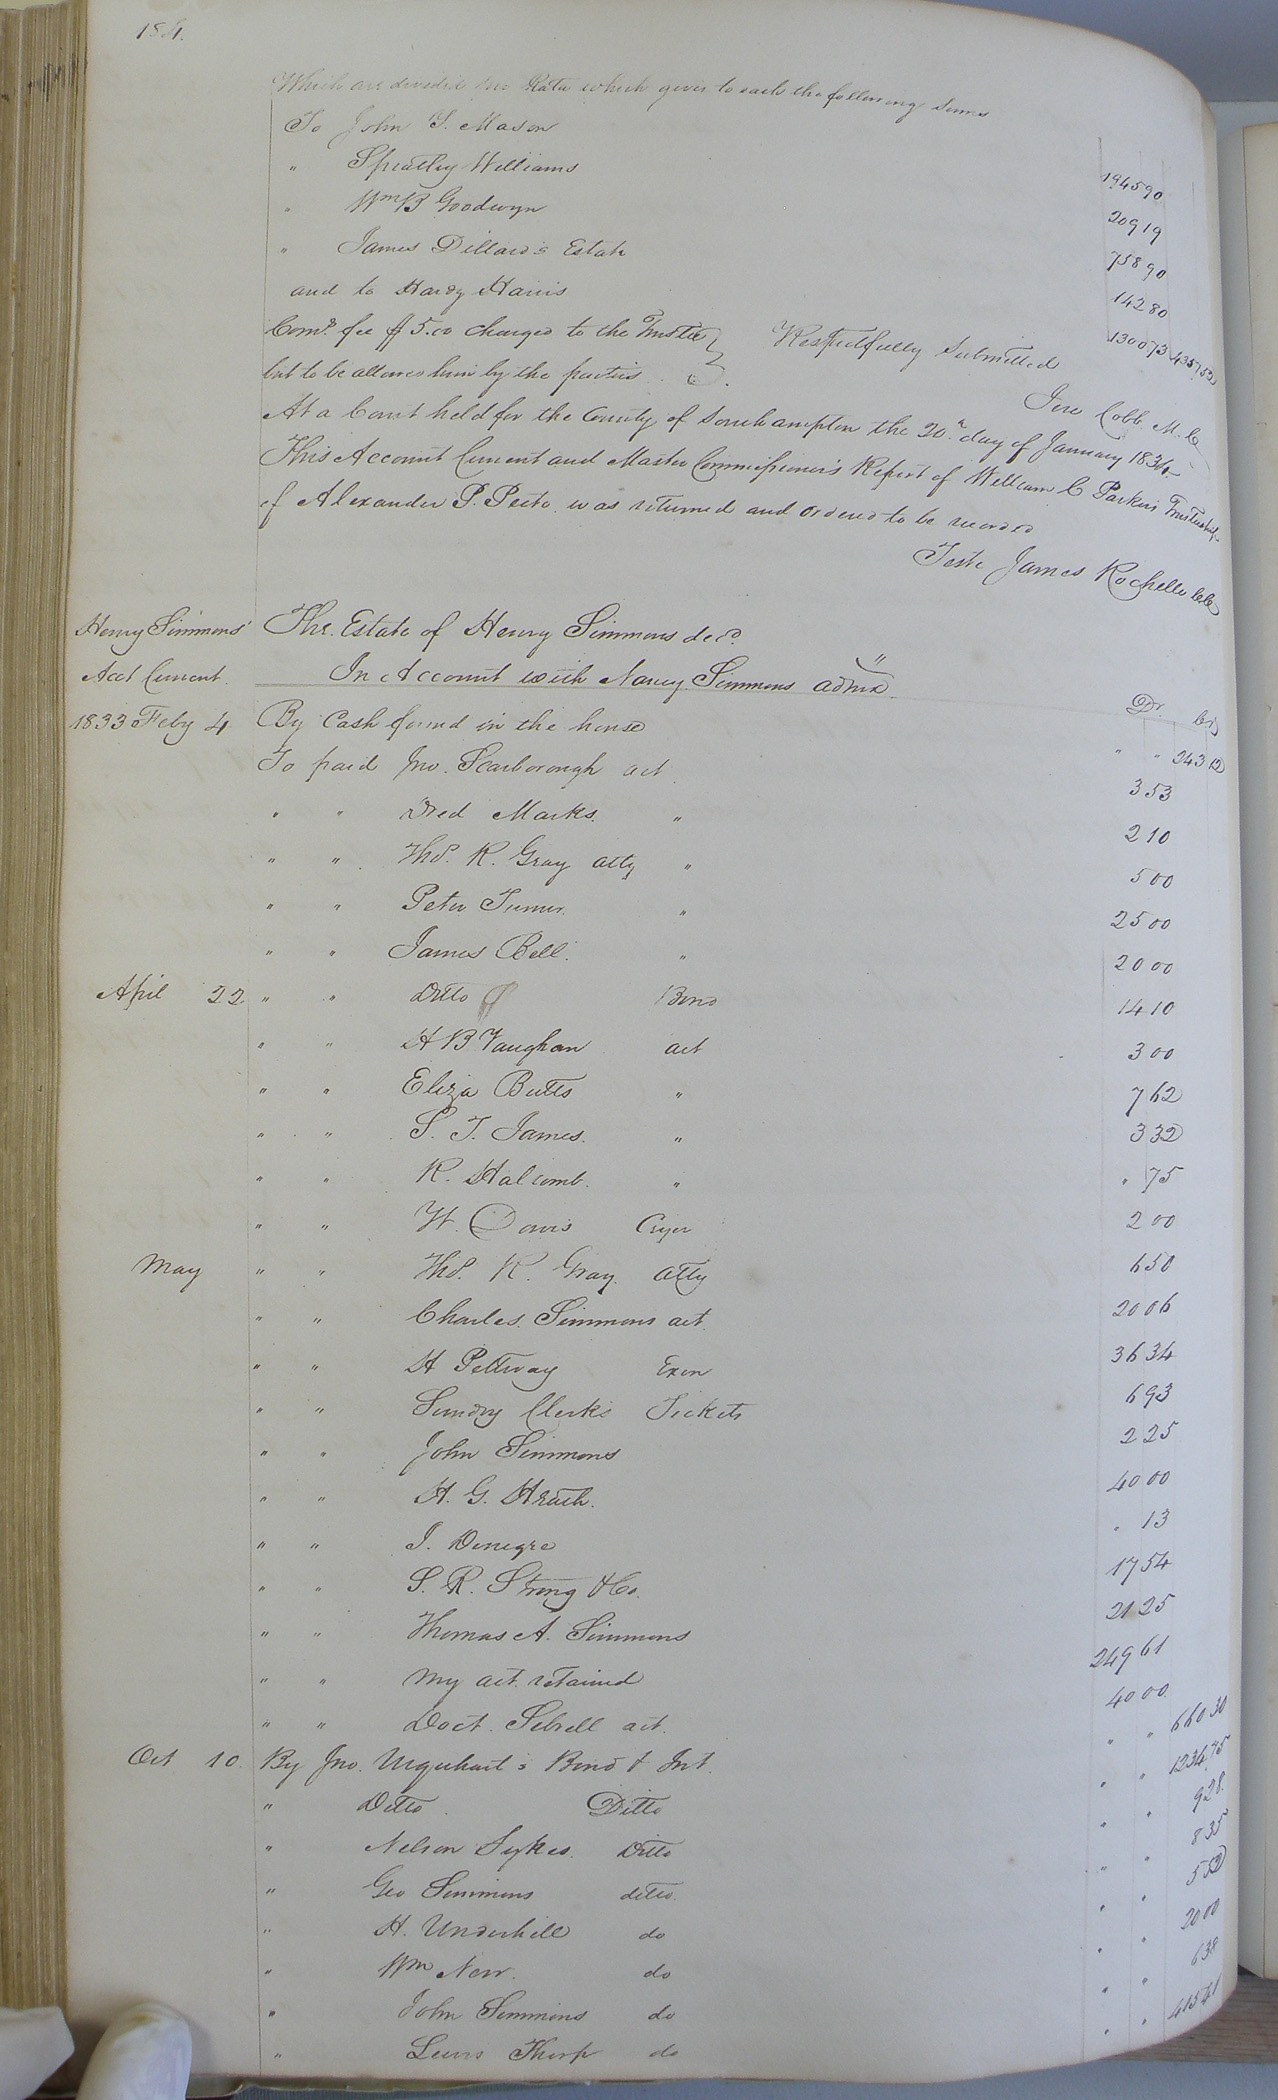 184.
Which are divided pro Rata which gives to each the following sums
To John Y. Mason 1945 90
" Spratley Williams 209 19
" Wm B Goodwyn 758 90
" James Dillard's Estate 142 80
and to Hardy Harris 1300 73 4357 52
Comr. fee $5.00 charged to the Trustee
but to be allowed him by the parties.
Respectfully Submitted
Jere Cobb M. C
At a Court held for the County of Southampton the 20th day of January 1834
This Account Current and Master Commissioner's Report of William C Parker's Trusteeship
of Alexander P. Peete was returned and ordered to be recorded
Teste James Rochelle CC
Henry Simmons' The Estate of Henry Simmons decd.
Acct Current. In Account with Nancy Simmons admx.
Dr. Cr
1833 Feby 4 By Cash found in the house " " 243 12
To paid Jno. Scarborough act 3 53
" " Dred Marks. " 2 10
" " Thos. R. Gray atty " 5 00
" " Peter Turner. " 25 00
" " James Bell. " 20 00
April 22 " " Ditto Bond 14 10
" " H B Vaughan act 3 00
" " Eliza Butts " 7 62
" " S. T. James. " 3 32
" " R. Halcomb. " " 75
" " W. Davis Cryer 2 00
May " " Thos. R. Gray. Atty 6 50
" " Charles Simmons act. 20 06
" " H Pettway Exon 36 34
" " Sundry Clerk's Tickets 6 93
" " John Simmons 2 25
" " H. G. Heath. 40 00
" " J. Denegre " 13
" " S. R. Strong & Co. 17 54
" " Thomas A. Simmons 21 25
" " My act. retained 249 61
" " Doct. Sebrell act. 40 00
Oct 10. By Jno. Urquhart's Bond & Int. " " 660 30
" Ditto. Ditto " " 1234.75
" Nelson Sykes. Ditto " " 9 28
" Geo Simmons ditto. " " 8 35
" H. Underhill do " " 5 52
" Wm New. do " " 20 00
" John Simmons do " " 6 38
" Lewis Thorp do " " 415 41